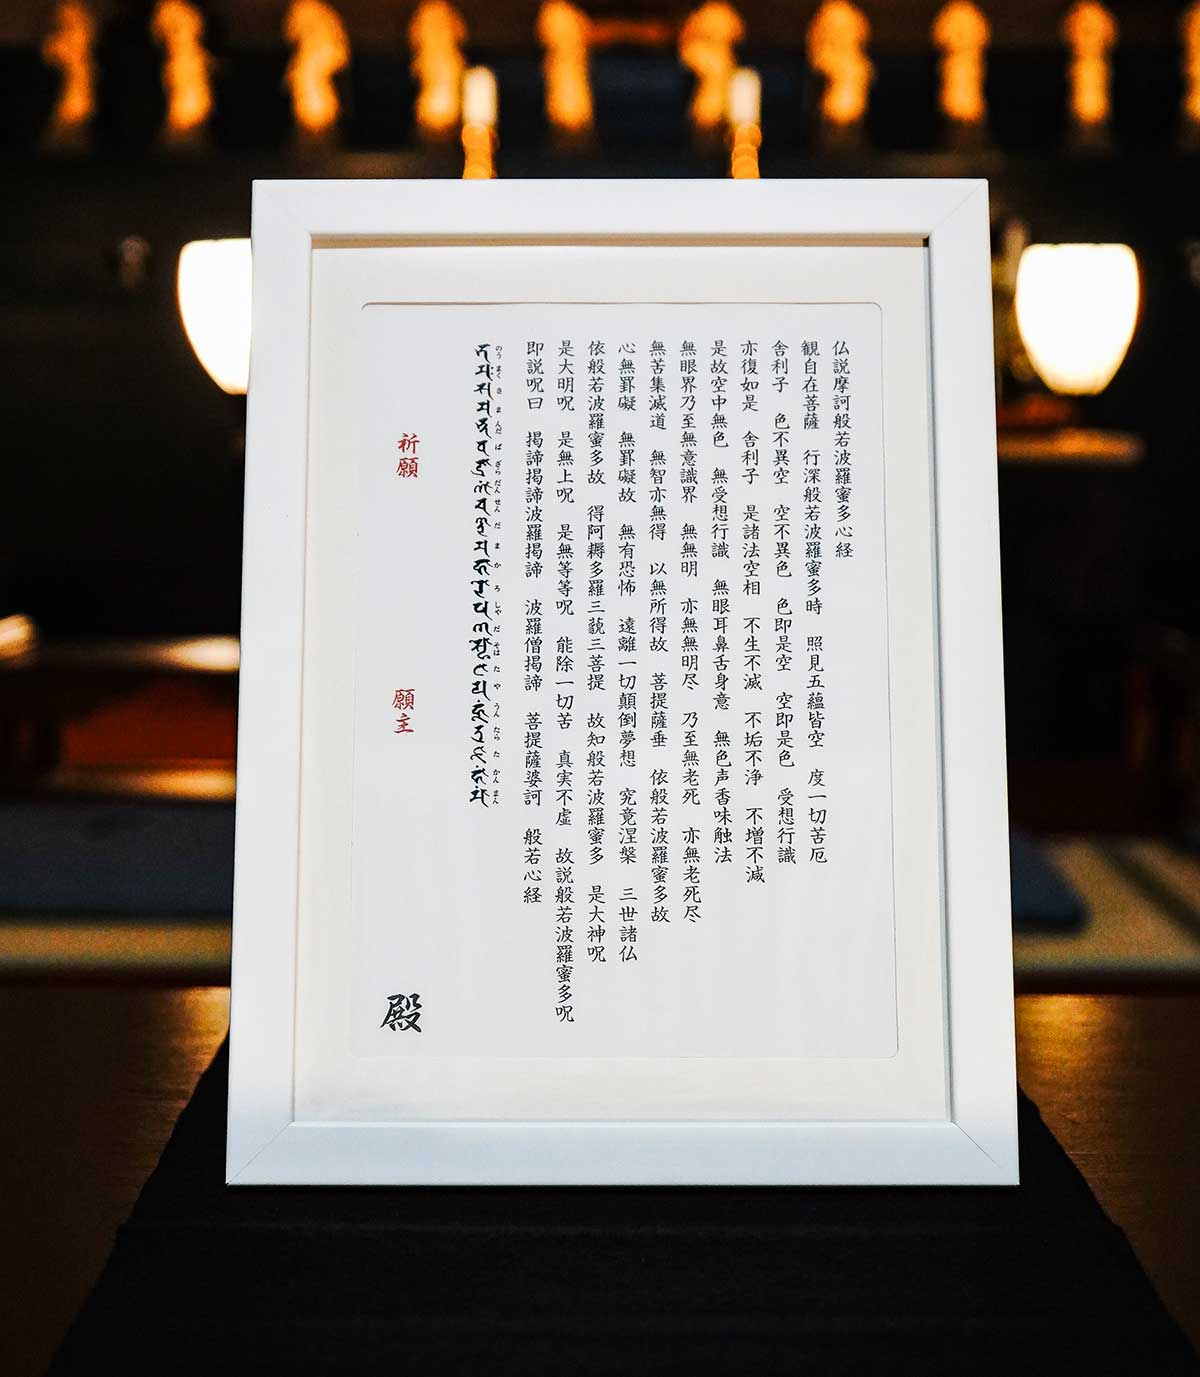 仏説摩訶般若波羅蜜多心経
観自在菩薩　行深般若波羅蜜多時　照見五蘊皆空　度一切苦厄
舎利子　色不異空　空不異色　色即是空　空即是色　受想行識
亦復如是　舎利子　是諸法空相　不生不滅　不垢不浄　不増不減
是故空中無色　無受想行識　無眼耳鼻舌身意　無色声香味触法
無眼界乃至無意識界　無無明　亦無無明尽　乃至無老死　亦無老死尽
無苦集滅道　無智亦無得　以無所得故　菩提薩埵　依般若波羅蜜多故
心無罣礙　無罣礙故　無有恐怖　遠離一切顛倒夢想　究竟涅槃　三世諸仏
依般若波羅蜜多故　得阿耨多羅三藐三菩提　故知般若波羅蜜多　是大神呪
是大明呪　是無上呪　是無等等呪　能除一切苦　真実不虚　故説般若波羅蜜多呪
即説呪曰　掲諦掲諦波羅掲諦　波羅僧掲諦　菩提薩婆訶　般若心経
のう まく さ まんだ ば ざらだん せん だ ま か ろ しゃ だ そは た や うん たら た かん まん
祈願
願主
殿